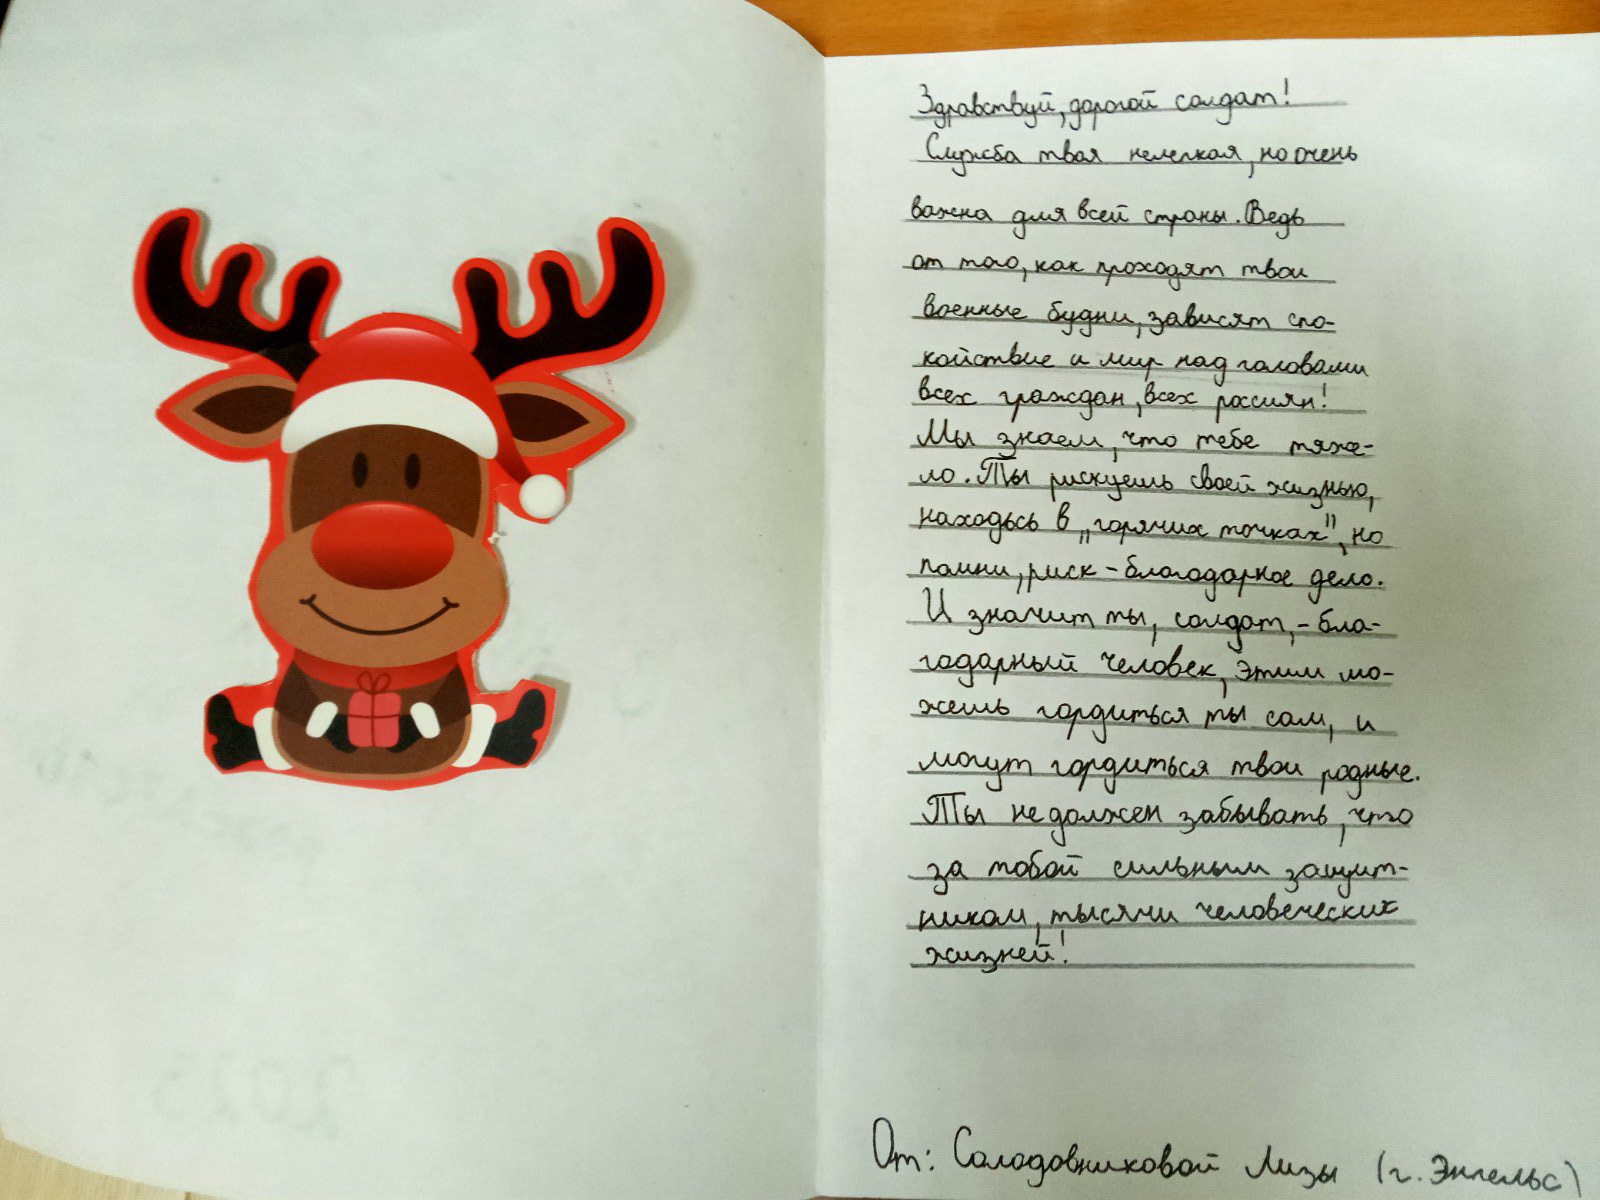 Здравствуй, дорогой солдат!
Служба твоя нелегкая, но очень
важна для всей страны. Ведь
от того, как проходят твои
военные будни, зависят спо-
койствие и мир над головами
всех граждан, всех россиян!
Мы знаем, что тебе тяже-
ло. Ты рискуешь своей жизнью,
находясь в „горячих точках", но
помни, риск - благодарное дело.
И значит ты, солдат, - бла-
годарный человек, этим мо-
жешь гордиться ты сам, и
могут гордиться твои родные.
Ты не должен забывать, что
за тобой сильным защит-
ником, тысячи человеческих
жизней!
От: Солодовниковой Лизы (г. Энгельс)